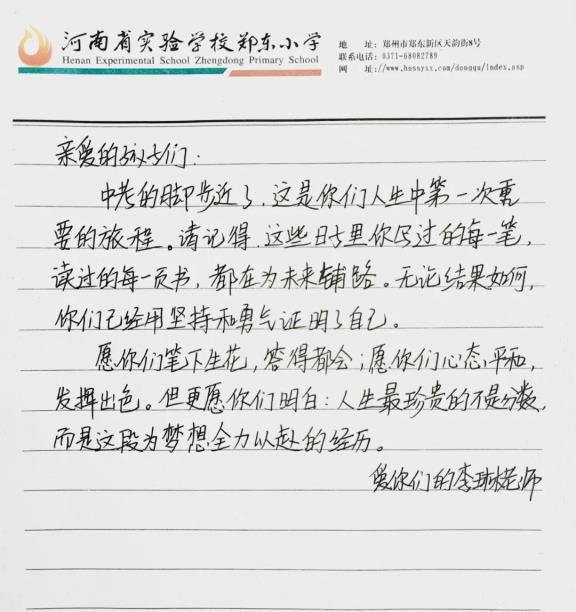 河南省实验学校郑东小学
Henan Experimental School Zhengdong Primary School
地 址：郑州市郑东新区天韵街8号
联系电话：0371-68082789
网 址://www.hsssyxx.com/dongqu/index.asp
亲爱的孩子们：
中考的脚步近了，这是你们人生中第一次重
要的旅程。请记得，这些日子里你写过的每一笔，
读过的每一页书，都在为未来铺路。无论结果如何，
你们已经用坚持和勇气证明了自己。
愿你们笔下生花，答得都会；愿你们心态平和，
发挥出色。但更愿你们明白：人生最珍贵的不是分数，
而是这段为梦想全力以赴的经历。
爱你们的李老师